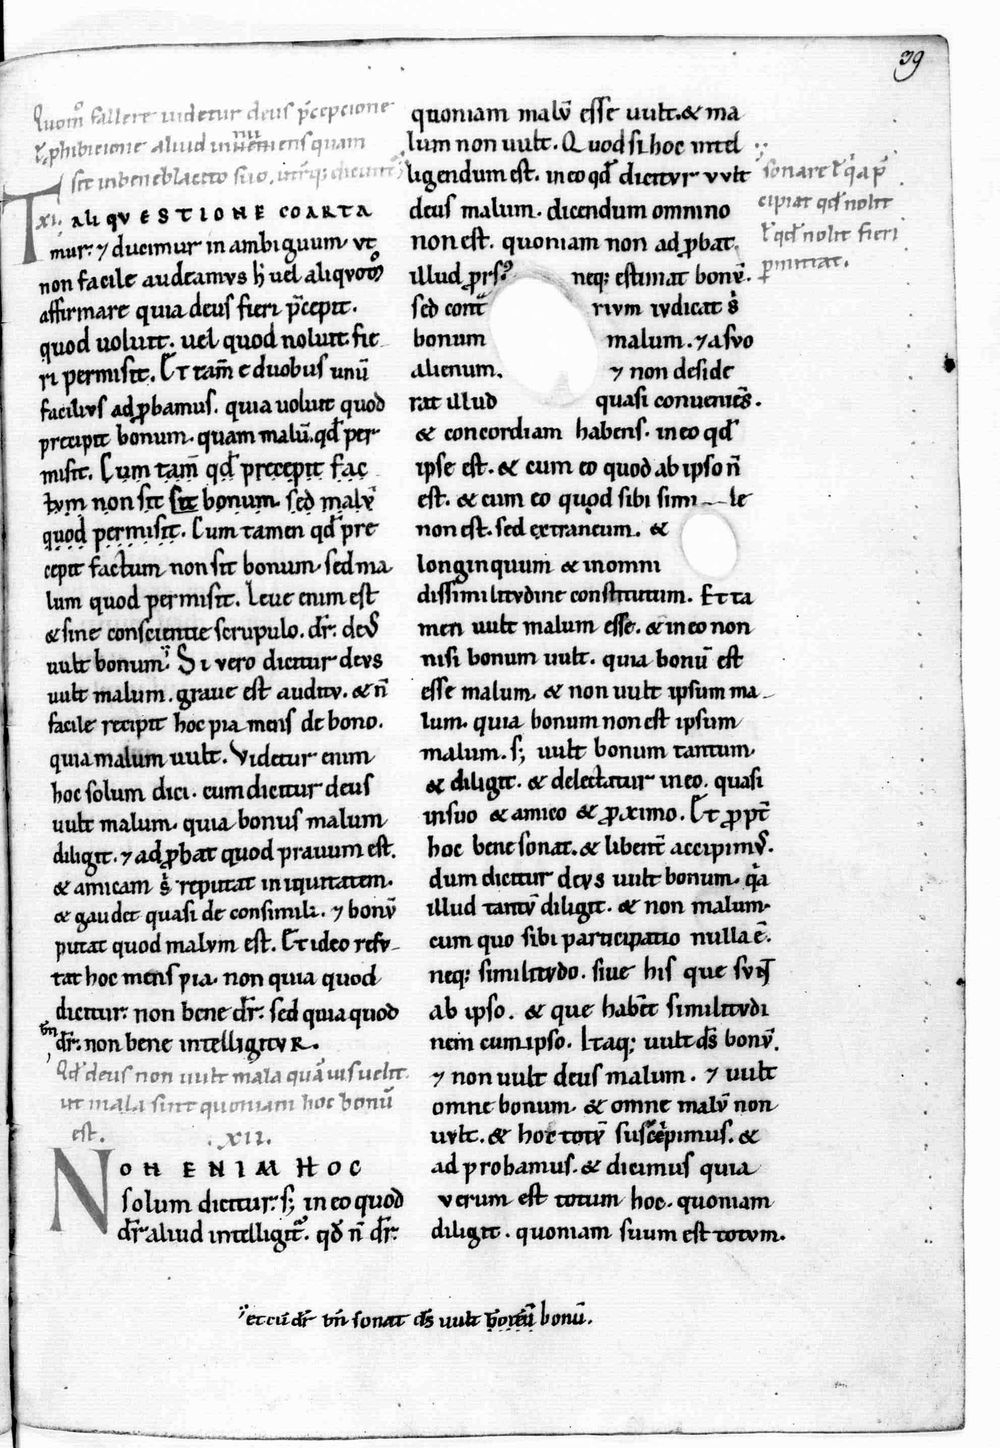 39
Quom̃ fallere uidetur deus p̄cepcione
ł phibicione aliud in mente habens quam
sit
xi. TALI QVESTIONE COARTA
mur: ⁊ ducimur in ambiguum. vt
non facile audeamvs h̄ uel aliquotiēs
affirmare quia deus fieri p̄cepit.
quod uoluit. uel quod noluit fie
ri permisit. Et tam̄ e duobus unū
facilivs adꝓbamus. quia uoluit quod
precipit bonum. quam malū. qđ per
misit. Cum tam̄ qđ precepit fac
tvm non sit sit bonum. sed malv̄
quod permisit. Cum tamen qđ pre
cepit factum non sit bonum. sed ma
lum quod permisit. Leue enim est
& sine conscientie scrupulo. dr̄. devs
uult bonum. Si vero dicitur devs
uult malum. graue est auditv. & n̄
facile recipit hoc pia mens de bono.
quia malum uult. Videtur enim
hoc solum dici. cum dicitur deus
uult malum. quia bonus malum
diligit. ⁊ adꝓbat quod prauum est.
& amicam s̄ reputat iniquitatem.
& gaudet quasi de consimili. ⁊ bonv̄
putat quod malvm est. Et ideo refv-
tat hoc mens pia. non quia quod
dicitur: non bene dr̄: sed quia quod
bn̄ dr̄: non bene intelligitvr.
Qđ deus non uult mala quāuis uelit
ut mala sint quoniam hoc bonū
est. .xii.
NON ENIM HOC
solum dicitur: s; in eo quod
dr̄ aliud intelligit̄. qđ n̄ dr̄:
quoniam malū esse uult. & ma
lum non uult. Quod si hoc intel
ligendum est. in eo qđ dicitvr vvlt
deus malum. dicendum omnino
non est. quoniam non adꝓbat
illud ꝓrs? neq; estimat bonv̄.
sed cont̄ rivm ivdicat s̄
bonum malum. ⁊ a svo
alienum. ⁊ non deside
rat illud quasi conueniēs.
& concordiam habens. in eo qđ
ipse est. & cum eo quod ab ipso n̄
est. & cum eo quod sibi simi—le
non est. sed extraneum. &
longinquum & in omni
dissimilitvdine constitutum. Et ta
men uult malum esse. & in eo non
nisi bonum uult. quia bonū est
esse malum. & non uult ipsum ma-
lum. quia bonum non est ipsum
malum. s; uult bonum tantum.
& diligit. & delectatur in eo. quasi
in suo & amico & ꝓximo. Et ꝓpt̄
hoc bene sonat. & libent̄ accipimvs.
dum dicitur devs uult bonum. q̄a
illud tantv̄ diligit. & non malum.
cum quo sibi participatio nulla ē.
neq; similitvdo. siue his que svnt
ab ipso. & que habēt similitvdi
nem cum ipso. Itaq; uult d̄s bonv̄.
⁊ non uult deus malum. ⁊ uult
omne bonum. & omne malv̄ non
uvlt. & hoc totv̄ suscepimus. &
adprobamus. & dicimus quia
verum est totum hoc. quoniam
diligit. quoniam suum est totvm.
sonare ł q̄a p̄
cipiat qđ nolit
ł qđ nolit fieri
ꝑmittat.
et cū dr̄ bn̄ sonat d̄s uult bonū.